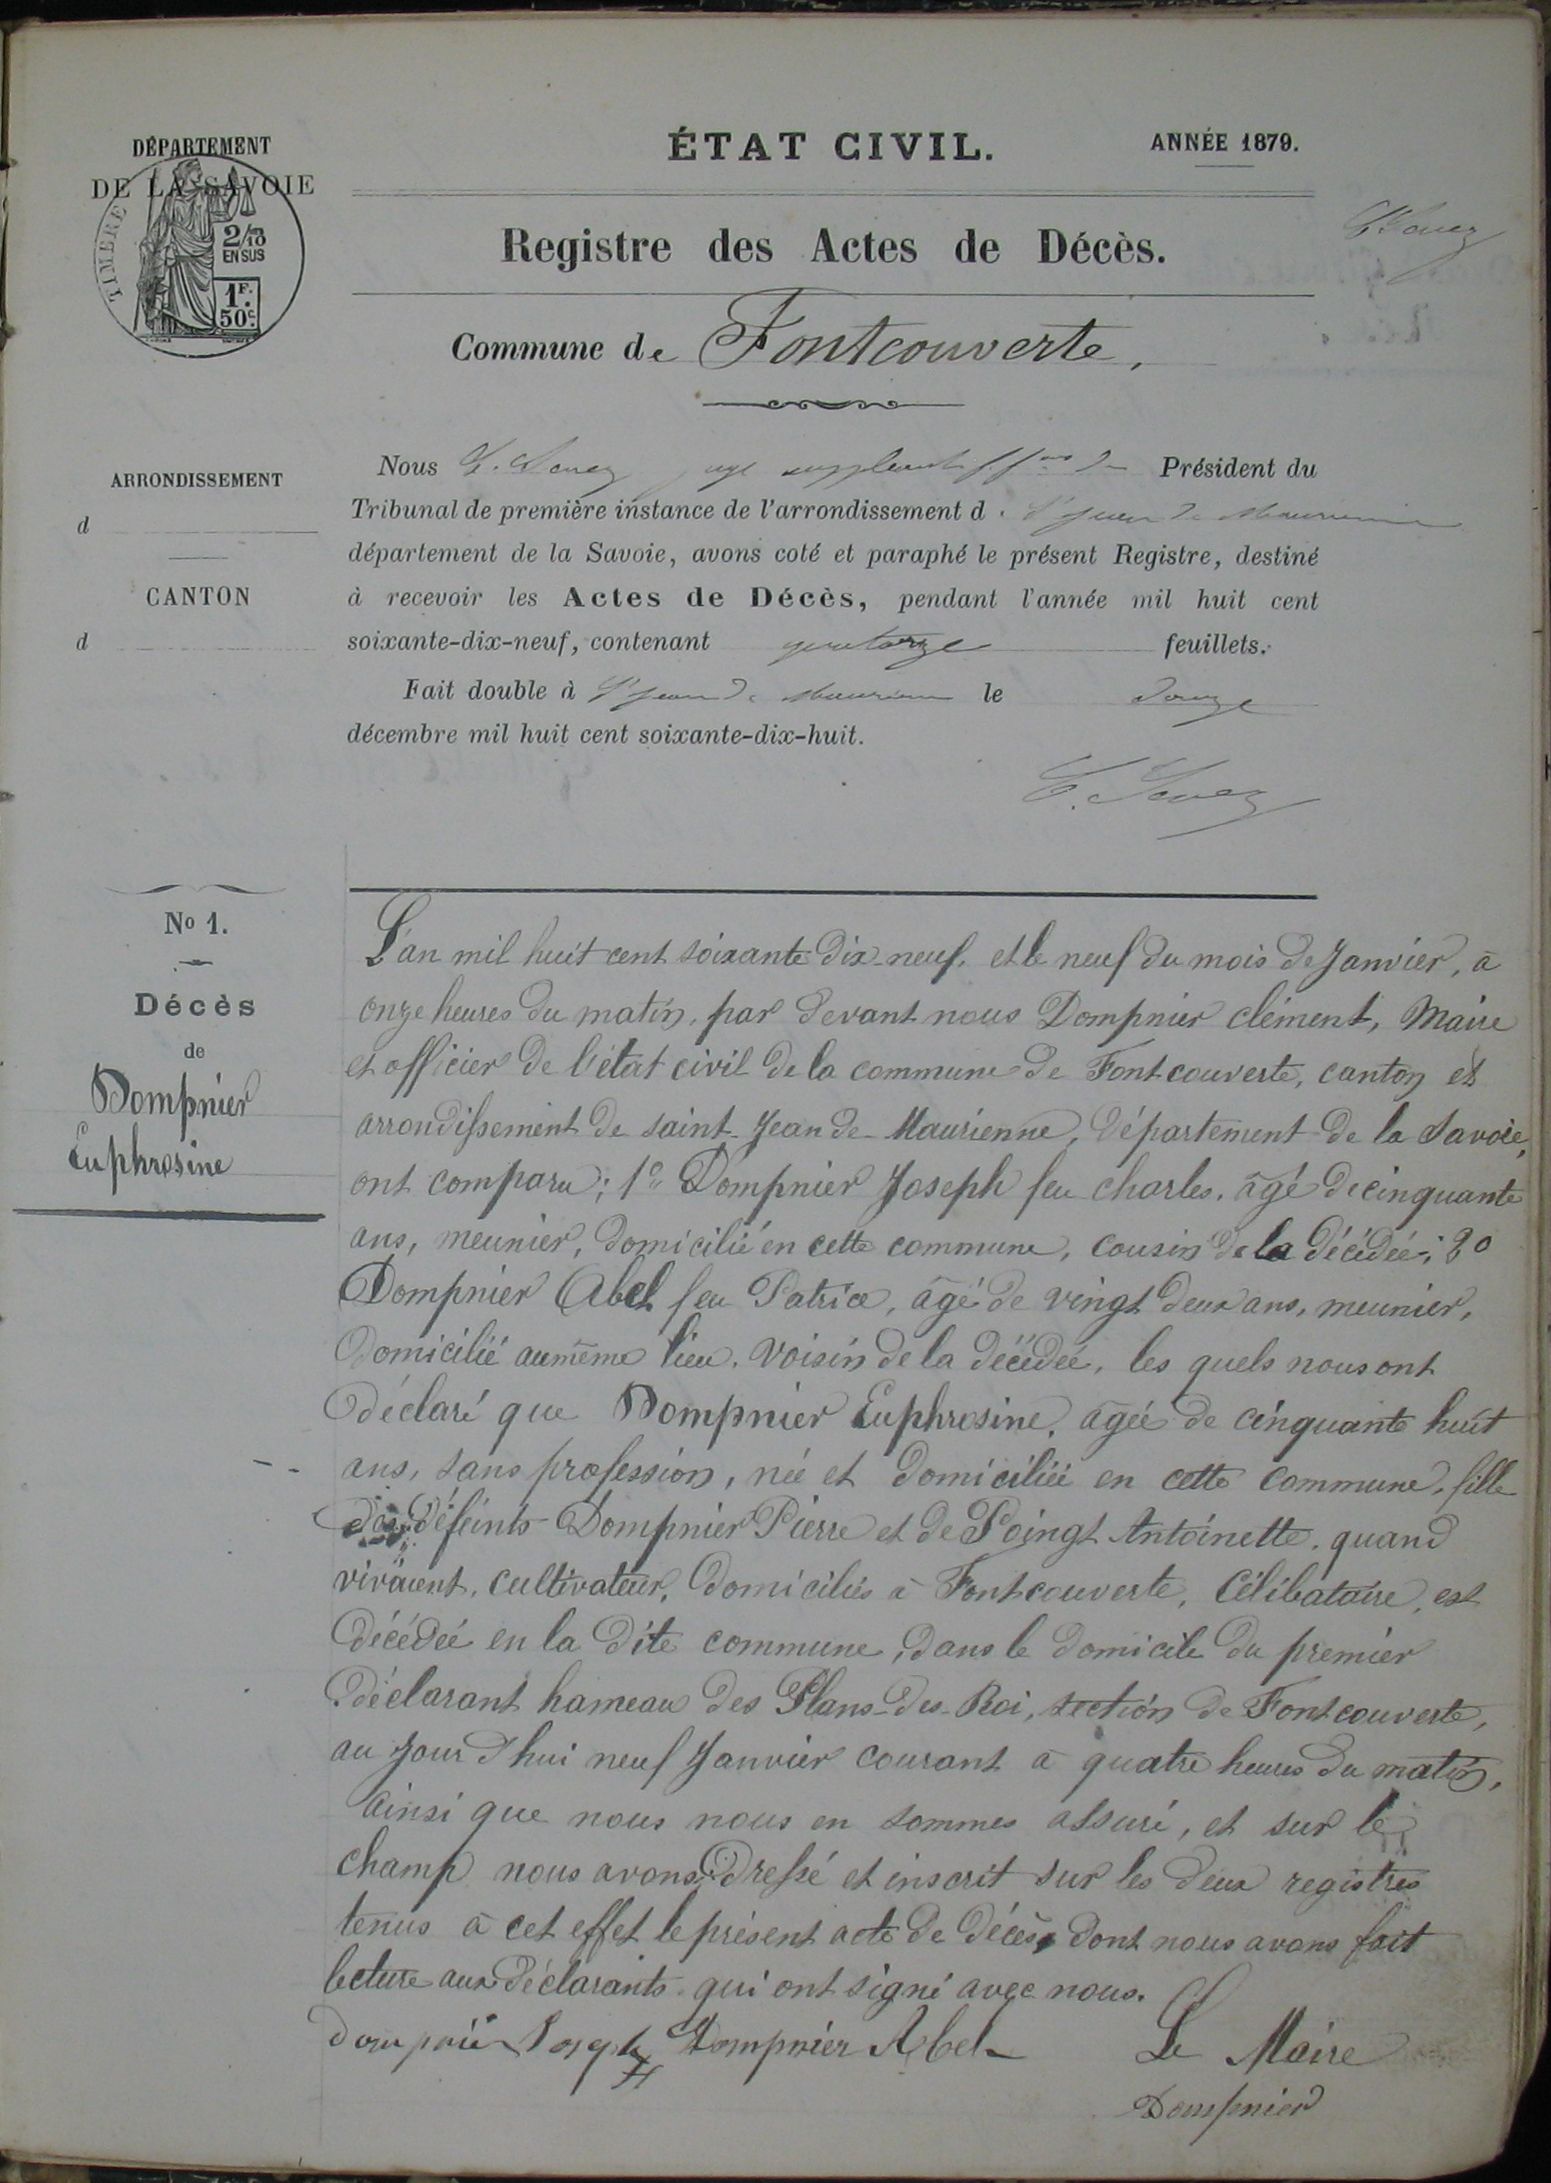 DÉPARTEMENT
DE LA SAVOIE
TIMBRE
2/10
EN SUS
1F.
50c.
ÉTAT CIVIL.
ANNÉE 1879.
Registre des Actes de Décès.
Commune de Fontcouverte,
ARRONDISSEMENT
d
CANTON
d
Nous juge suppléant Président du
Tribunal de première instance de l'arrondissement d St Jean de Maurienne
département de la Savoie, avons coté et paraphé le présent Registre, destiné
à recevoir les Actes de Décès, pendant l'année mil huit cent
soixante-dix-neuf, contenant quatorze feuillets.
Fait double à St Jean de Maurienne le douze
décembre mil huit cent soixante-dix-huit.
No 1.
Décès
de
Dompnier
Euphrosine
L'an mil huit cent soixante dix-neuf, et le neuf du mois de Janvier, à
onze heures du matin, par devant nous Dompnier clément, Maire
et officier de l'état civil de la commune de Fontcouverte, canton et
arrondissement de saint-Jean de-Maurienne, département de la Savoie,
ont comparu; 1o Dompnier Joseph feu charles, âgé de cinquante
ans, meunier, domicilié en cette commune, cousin de la décédée; 2o
Dompnier Abel feu Patrice, âgé de vingt deux ans, meunier,
domicilié au même lieu, voisin de la décédée, les quels nous ont
déclaré que Dompnier Euphrosine, agée de cinquante huit
ans, sans profession, née et domiciliée en cette commune, fille
des défunts Dompnier Pierre et de Poingt Antoinette, quand
vivaient, cultivateur, domiciliés à Fontcouverte, Célibataire, est
décédée en la dite commune, dans le domicile du premier
déclarant hameau des Plans-des-Roi, section de Fontcouverte,
au jour d'hui neuf Janvier courant à quatre heures du matin,
ainsi que nous nous en sommes assuré, et sur le
champ nous avons dressé et inscrit sur les deux registres
tenus à cet effet le présent acte de décès, dont nous avons fait
lecture aux déclarants qui ont signé avec nous.
dompnier Joseph Dompnier Abel Le Maire
Dompnier